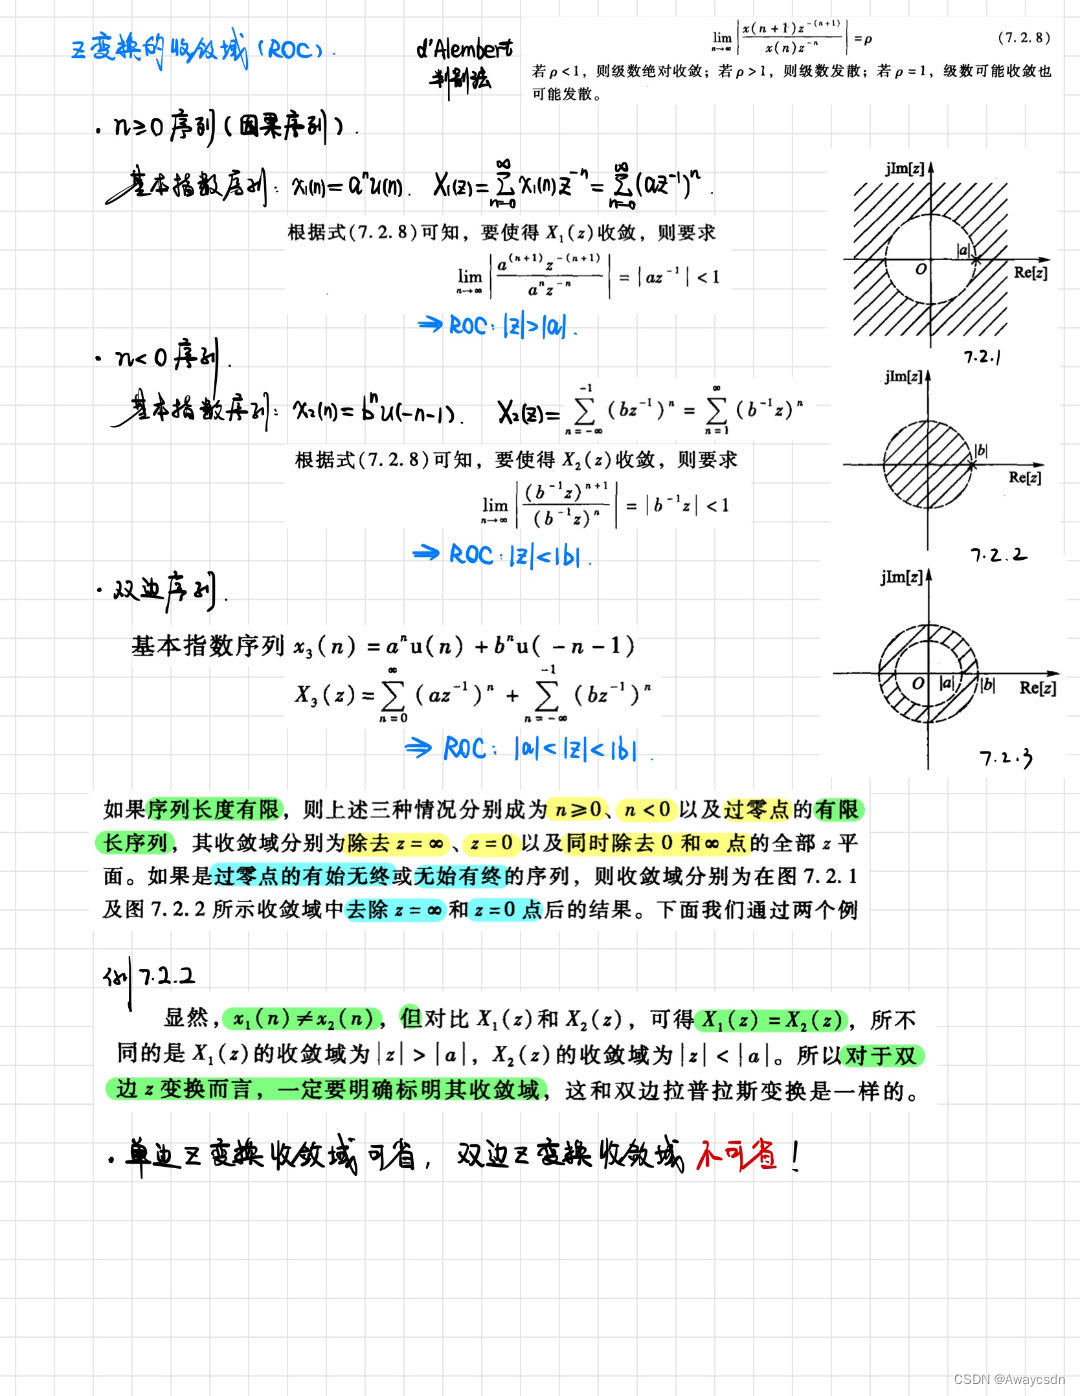 Z变换的收敛域(ROC).
d'Alembert
判别法
lim n→∞ | x(n+1)z^{-(n+1)} / x(n)z^{-n} | = ρ (7.2.8)
若 ρ<1，则级数绝对收敛；若 ρ>1，则级数发散；若 ρ=1，级数可能收敛也
可能发散。
· n≥0 序列(因果序列).
基本指数序列: x₁(n)=aⁿu(n). X₁(z)=∑_{n=0}^{∞} x₁(n)z^{-n}=∑_{n=0}^{∞}(az^{-1})^n.
根据式(7.2.8)可知，要使得 X₁(z)收敛，则要求
lim n→∞ | a^{(n+1)}z^{-(n+1)} / aⁿz^{-n} | = |az^{-1}| < 1
⇒ ROC: |z|>|a|.
jIm[z]
|a|
O
Re[z]
7.2.1
· n<0 序列.
基本指数序列: x₂(n)=bⁿu(-n-1). X₂(z)=∑_{n=-∞}^{-1}(bz^{-1})^n = ∑_{n=1}^{∞}(b^{-1}z)^n
根据式(7.2.8)可知，要使得 X₂(z)收敛，则要求
lim n→∞ | (b^{-1}z)^{n+1} / (b^{-1}z)^n | = |b^{-1}z| < 1
⇒ ROC: |z|<|b|.
jIm[z]
|b|
Re[z]
7.2.2
· 双边序列.
基本指数序列 x₃(n)=aⁿu(n)+bⁿu(-n-1)
X₃(z)=∑_{n=0}^{∞}(az^{-1})^n + ∑_{n=-∞}^{-1}(bz^{-1})^n
⇒ ROC: |a|<|z|<|b|.
jIm[z]
O |a| |b| Re[z]
7.2.3
如果序列长度有限，则上述三种情况分别成为 n≥0、n<0 以及过零点的有限
长序列，其收敛域分别为除去 z=∞、z=0 以及同时除去 0 和∞ 点的全部 z 平
面。如果是过零点的有始无终或无始有终的序列，则收敛域分别为在图 7.2.1
及图 7.2.2 所示收敛域中去除 z=∞ 和 z=0 点后的结果。下面我们通过两个例
例 7.2.2
显然，x₁(n)≠x₂(n)，但对比 X₁(z)和 X₂(z)，可得 X₁(z)=X₂(z)，所不
同的是 X₁(z)的收敛域为|z|>|a|，X₂(z)的收敛域为|z|<|a|。所以对于双
边 z 变换而言，一定要明确标明其收敛域，这和双边拉普拉斯变换是一样的。
· 单边Z变换收敛域可省，双边Z变换收敛域 不可省!
CSDN @Awaycsdn